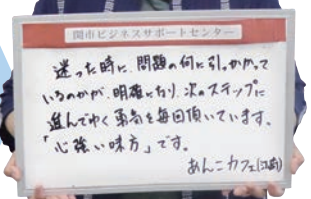 関市ビジネスサポートセンター
迷った時に、問題の何に引っかかって
いるのかが、明確になり、次のステップに
進んでゆく勇気を毎回頂いています。
「心強い味方」です。
あんこカフェ